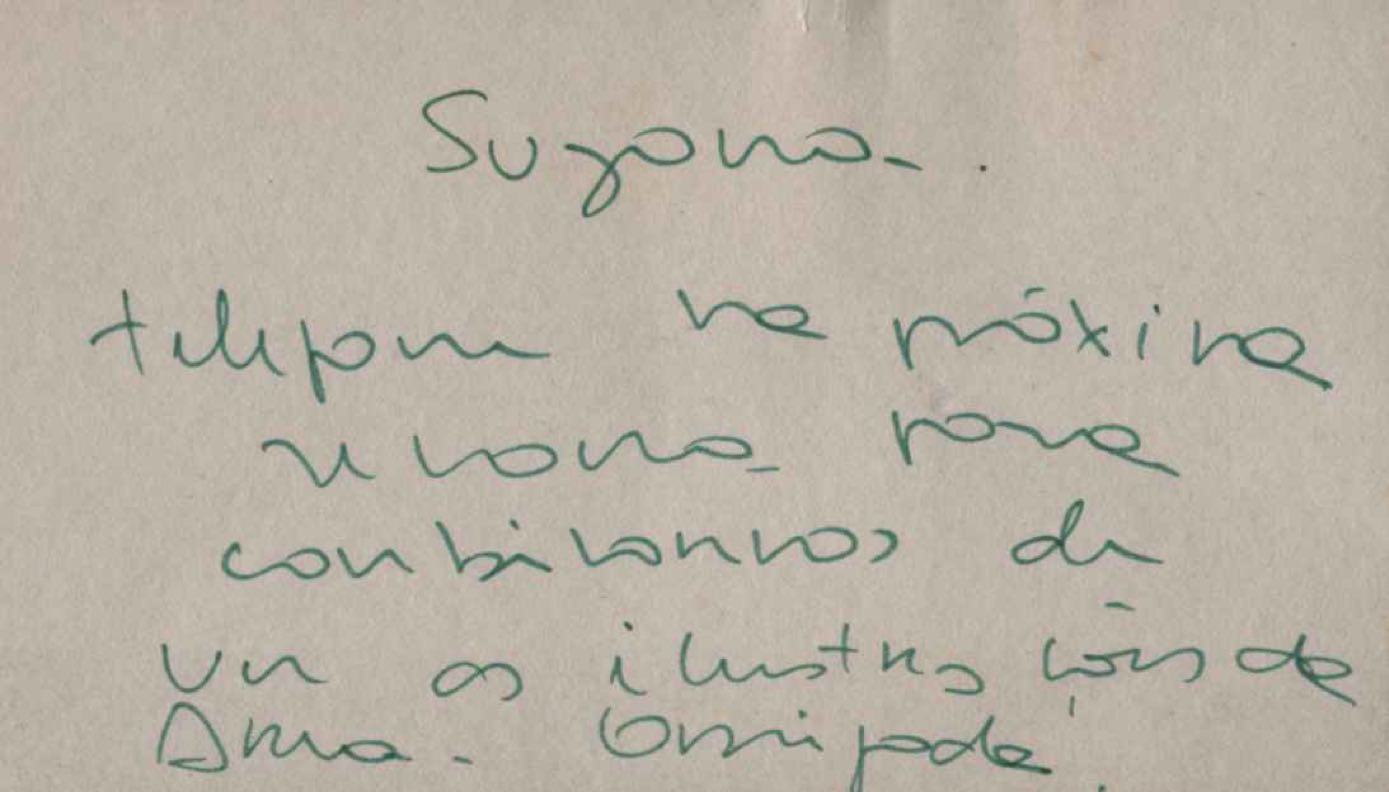 Suzana.
telefone na próxima
semana para
combinarmos de
ver as ilustrações da
Anna. Obrigada.